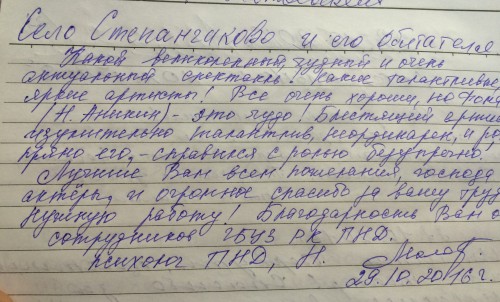 Село Степанчиково и его обитатели
Какой великолепный, чудный и очень
актуальный спектакль! Какие талантливые,
яркие артисты! Все очень хороши, но Фома
(Н. Аникин) - это чудо! Блестящий
изумительно талантлив, неординарен, и
прямо его, - справился с ролью безупречно.
Лучшие Вам всем пожелания, господа
актёры, и огромное спасибо за вашу
нужную работу! Благодарность Вам
сотрудников ГБУЗ РК ПНД.
психолог ПНД, Н.
29.10.2016г.